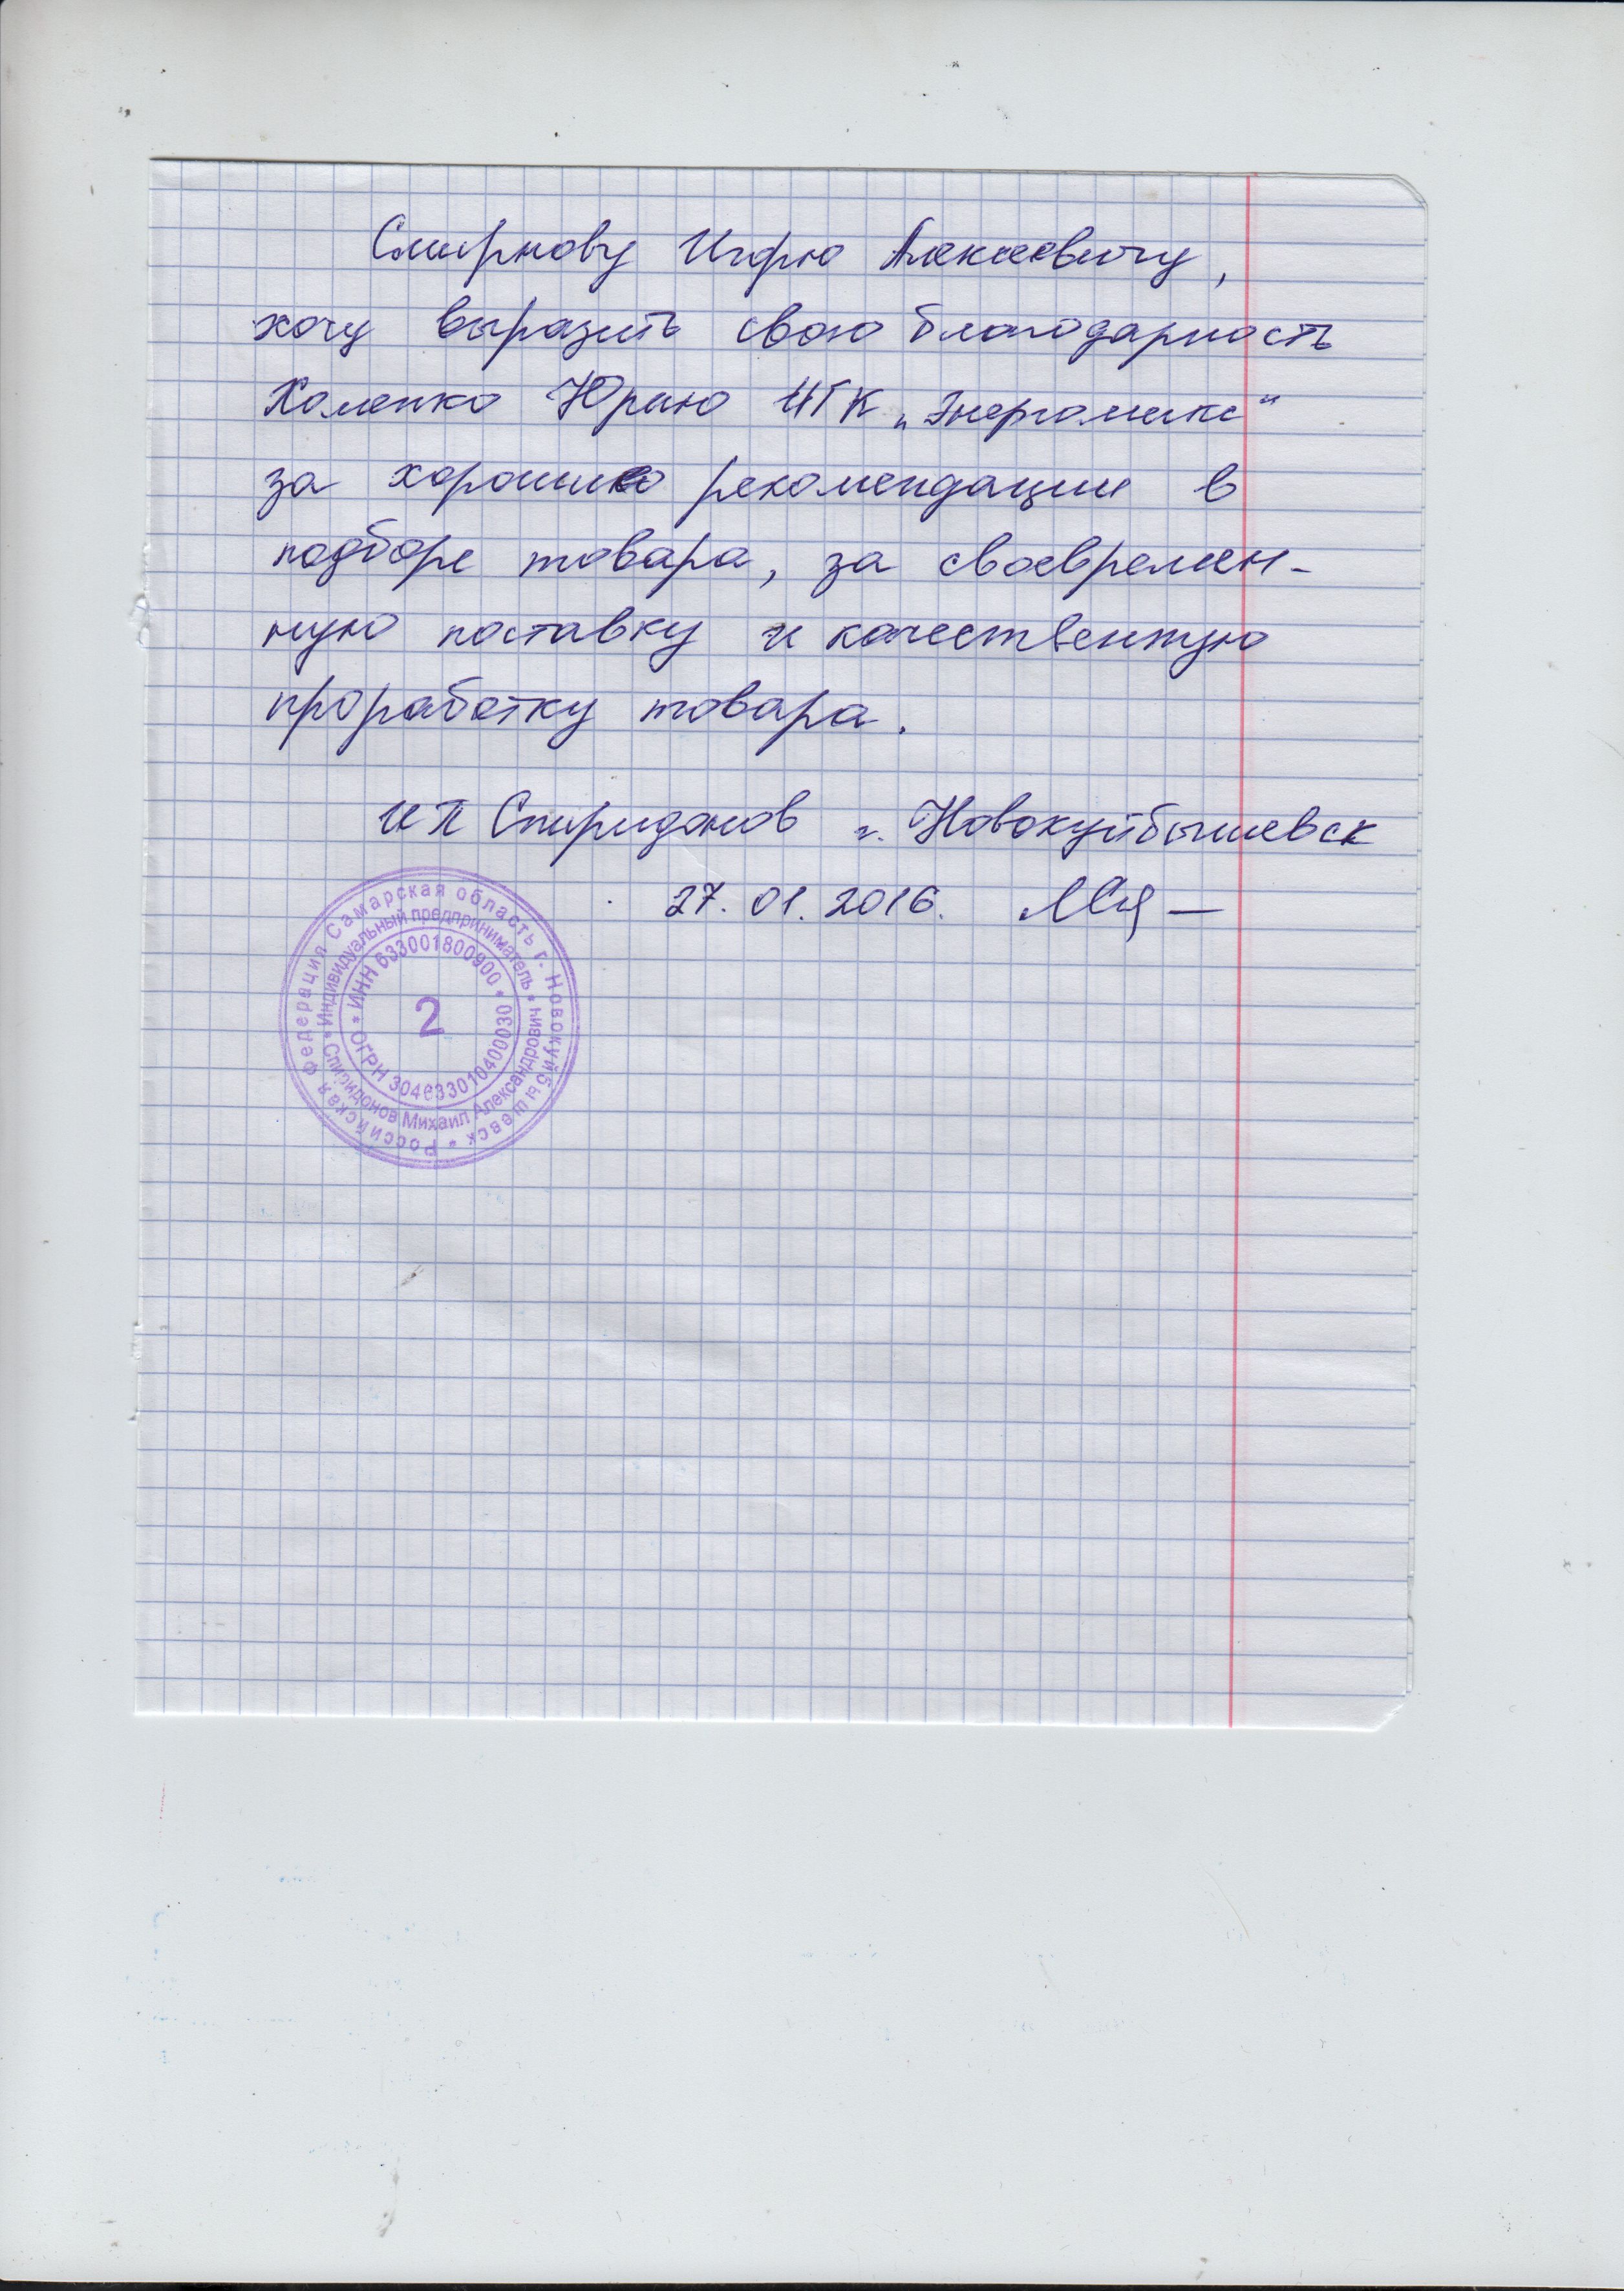 Смирнову Игорю Алексеевичу,
хочу выразить свою благодарность
Холенко Юрию ИГК „Энергомикс“
за хорошие рекомендации в
подборе товара, за своевремен-
ную поставку и качественную
проработку товара.
ИП Спиридонов г. Новокуйбышевск
27.01.2016.
Российская Федерация Самарская область г. Новокуйбышевск
Индивидуальный предприниматель
Спиридонов Михаил Александрович
ИНН 633001800900
ОГРН 304633010400030
2